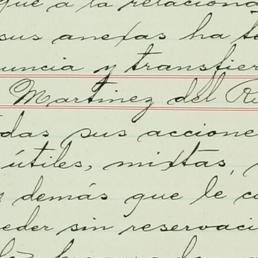 que a la relaciona
sus anexas ha t
uncia y transfier
Martinez del R
das sus accione
útiles, mixtas,
y demás que le c
eder sin reservaci